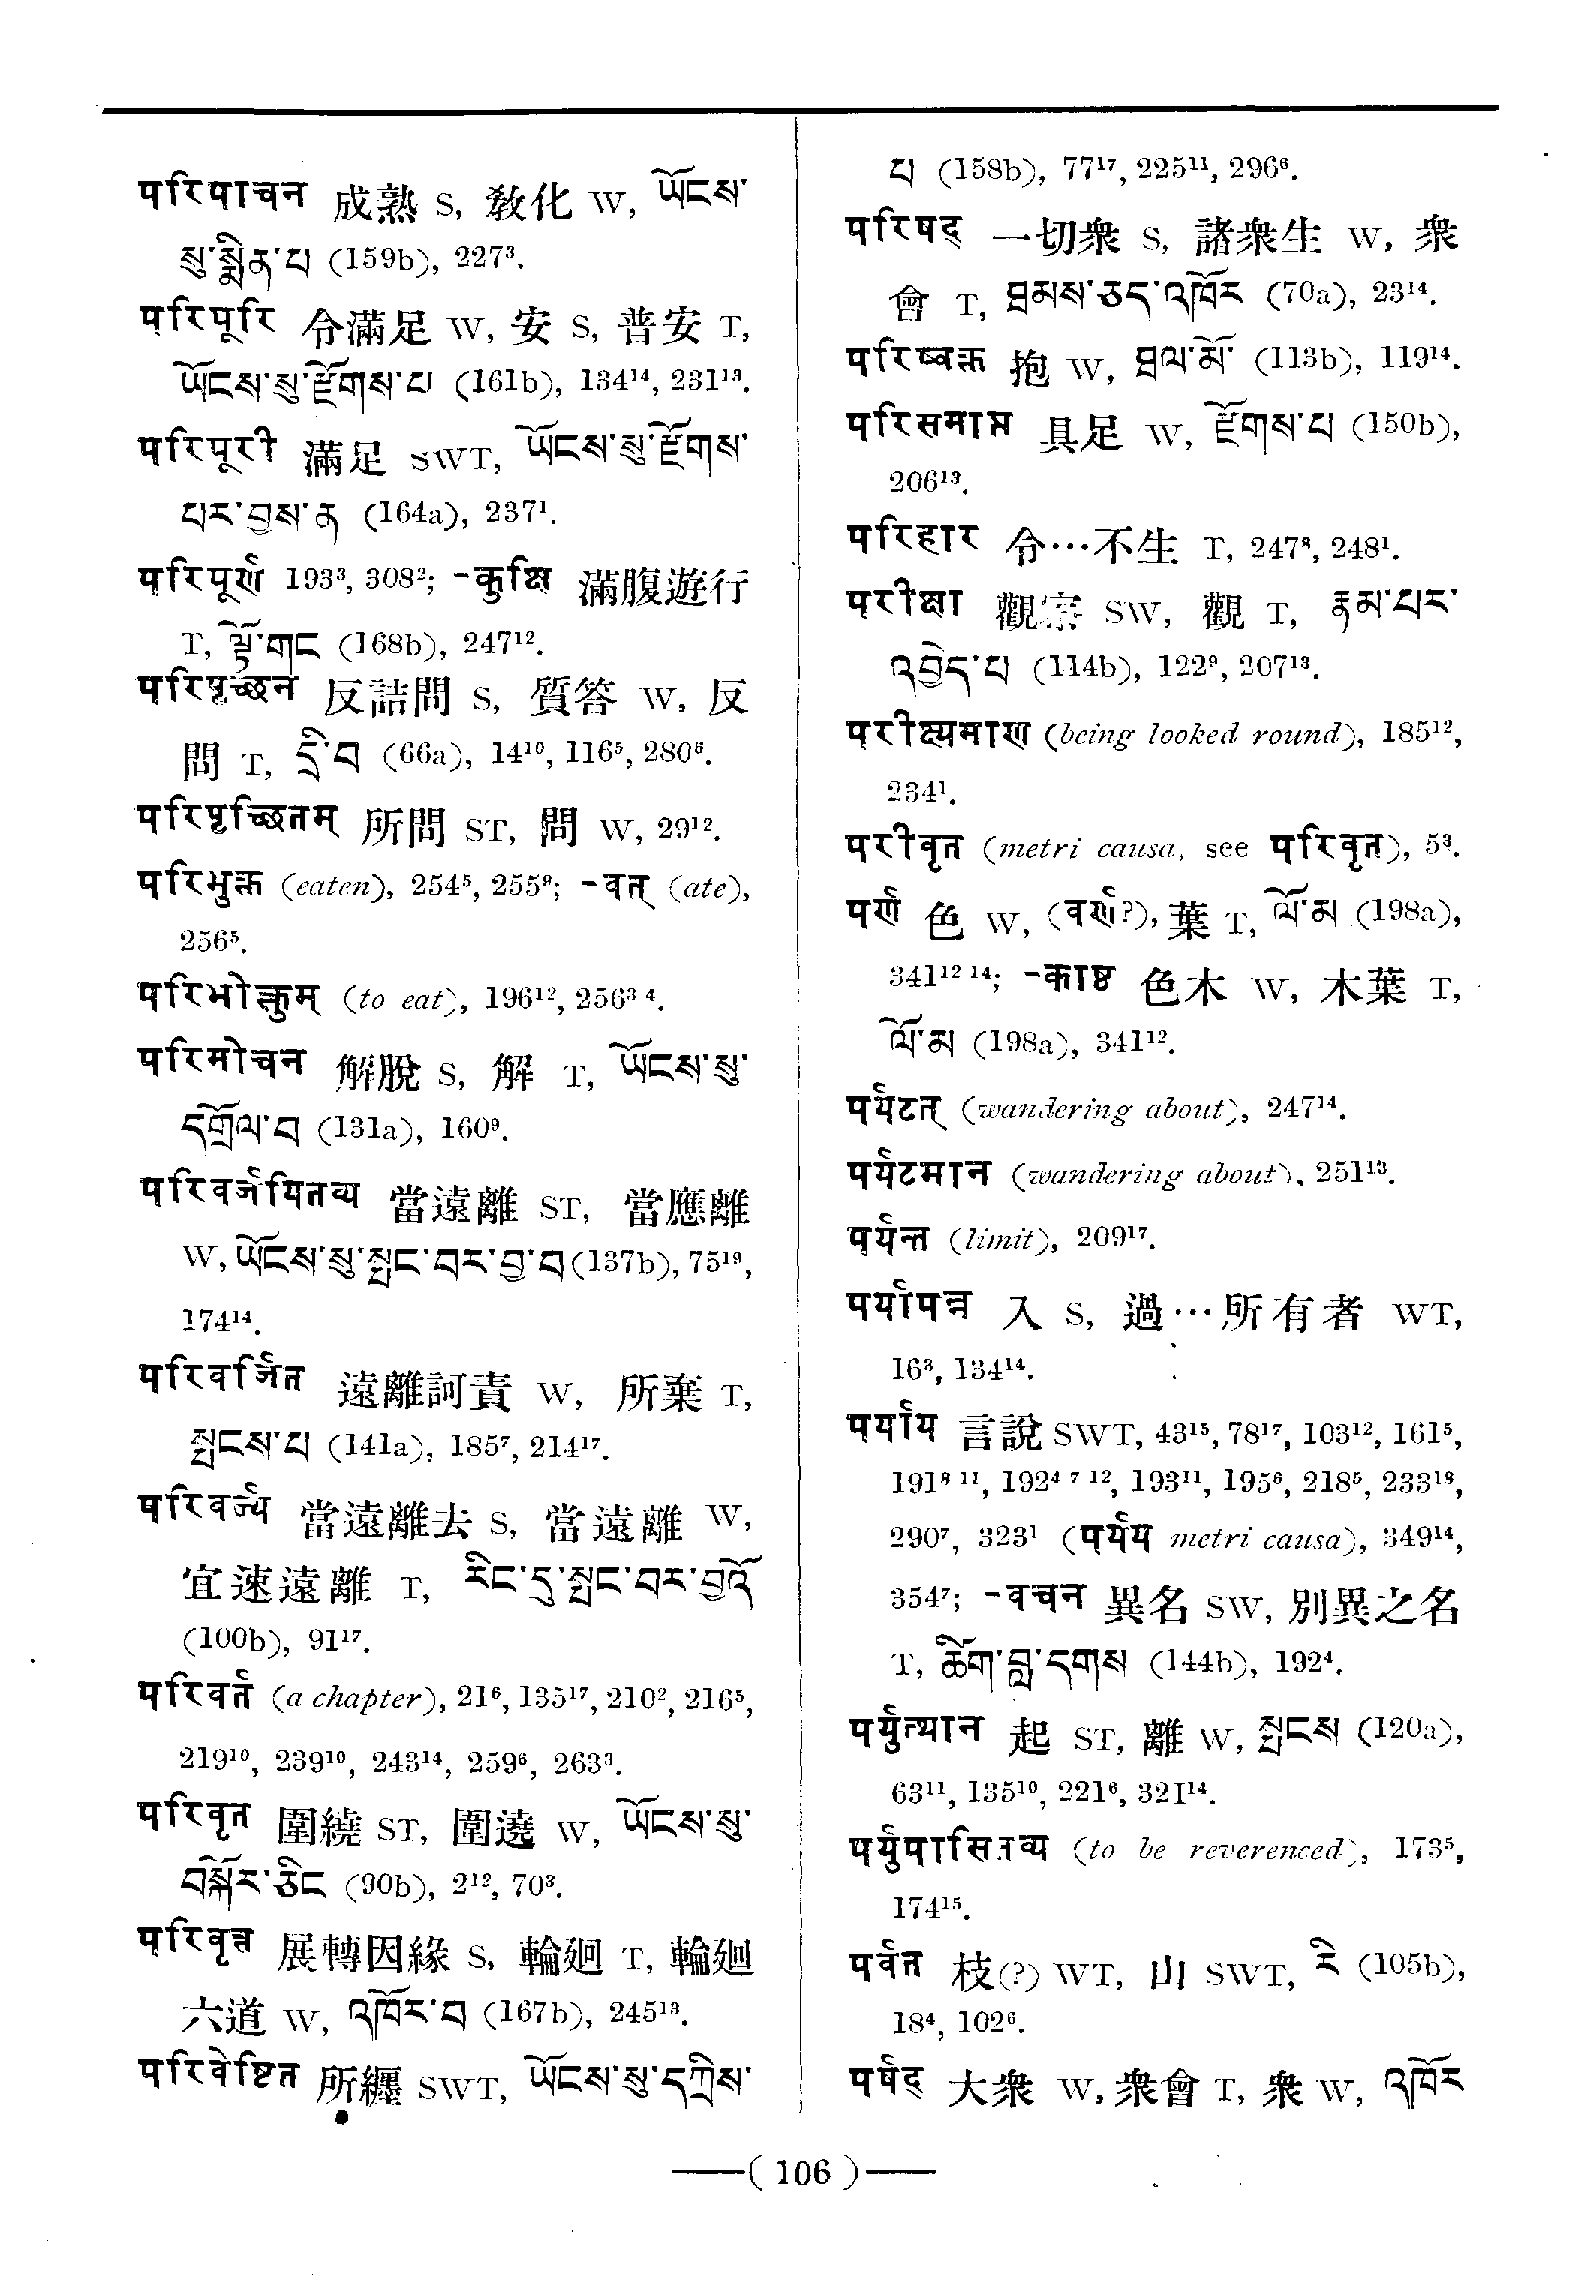 परिपाचन 成熟 S, 敎化 W, ཡོངས་
སུ་སྨིན་པ (159b), 227³.
परिपूरि 令滿足 W, 安 S, 普安 T,
ཡོངས་སུ་རྫོགས་པ (161b), 134¹⁴, 231¹³.
परिपूरी 滿足 SWT, ཡོངས་སུ་རྫོགས་
པར་བྱས་ན (164a), 237¹.
परिपूर्ण 193³, 308²; -कुक्षि 滿腹遊行
T, ལྟོ་གང (168b), 247¹².
परिपृच्छन 反詰問 S, 質答 W, 反
問 T, དྲི་བ (66a), 14¹⁰, 116⁵, 280⁶.
परिपृच्छितम् 所問 ST, 問 W, 29¹².
परिभुक्त (eaten), 254⁵, 255⁹; -वत् (ate),
256⁵.
परिभोक्तुम् (to eat), 196¹², 256³ ⁴.
परिमोचन 解脫 S, 解 T, ཡོངས་སུ་
དགྲོལ་བ (131a), 160⁹.
परिवर्जयितव्य 當遠離 ST, 當應離
W, ཡོངས་སུ་སྤང་བར་བྱ་བ (137b), 75¹⁹,
174¹⁴.
परिवर्जित 遠離訶責 W, 所棄 T,
སྤངས་པ (141a), 185⁷, 214¹⁷.
परिवर्ज्य 當遠離去 S, 當遠離 W,
宜速遠離 T, རིང་དུ་སྤང་བར་བྱའོ
(100b), 91¹⁷.
परिवर्त (a chapter), 21⁶, 135¹⁷, 210², 216⁵,
219¹⁰, 239¹⁰, 243¹⁴, 259⁶, 263³.
परिवृत 圍繞 ST, 圍遶 W, ཡོངས་སུ་
བསྐོར་ཅིང (90b), 2¹², 70³.
परिवृत्त 展轉因緣 S, 輪廻 T, 輪廻
六道 W, འཁོར་བ (167b), 245¹³.
परिवेष्टित 所纒 SWT, ཡོངས་སུ་དཀྲིས་
པ (158b), 77¹⁷, 225¹¹, 296⁶.
परिषद् 一切衆 S, 諸衆生 W, 衆
會 T, ཐམས་ཅད་འཁོར (70a), 23¹⁴.
परिष्वक्त 抱 W, ཐལ་མོ་ (113b), 119¹⁴.
परिसमाप्त 具足 W, རྫོགས་པ (150b),
206¹³.
परिहार 令…不生 T, 247⁸, 248¹.
परीक्षा 觀察 SW, 觀 T, རྣམ་པར་
འབྱེད་པ (114b), 122⁹, 207¹³.
परीक्ष्यमाण (being looked round), 185¹²,
234¹.
परीवृत (metri causa, see परिवृत), 5³.
पर्ण 色 W, (वर्ण?), 葉 T, ལོ་མ (198a),
341¹² ¹⁴; -काष्ठ 色木 W, 木葉 T,
ལོ་མ (198a), 341¹².
पर्यटत् (wandering about), 247¹⁴.
पर्यटमान (wandering about), 251¹³.
पर्यन्त (limit), 209¹⁷.
पर्यापन्न 入 S, 過…所有者 WT,
16³, 134¹⁴.
पर्याय 言說 SWT, 43¹⁵, 78¹⁷, 103¹², 161⁵,
191⁸ ¹¹, 192⁴ ⁷ ¹², 193¹¹, 195⁶, 218⁵, 233¹⁸,
290⁷, 323¹ (पर्यय metri causa), 349¹⁴,
354⁷; -वचन 異名 SW, 別異之名
T, ཚིག་བླ་དགས (144b), 192⁴.
पर्युत्थान 起 ST, 離 W, སྤངས (120a),
63¹¹, 135¹⁰, 221⁶, 321¹⁴.
पर्युपासितव्य (to be reverenced), 173⁵,
174¹⁵.
पर्वत 枝(?) WT, 山 SWT, རི (105b),
18⁴, 102⁶.
पर्षद् 大衆 W, 衆會 T, 衆 W, འཁོར
—( 106 )—